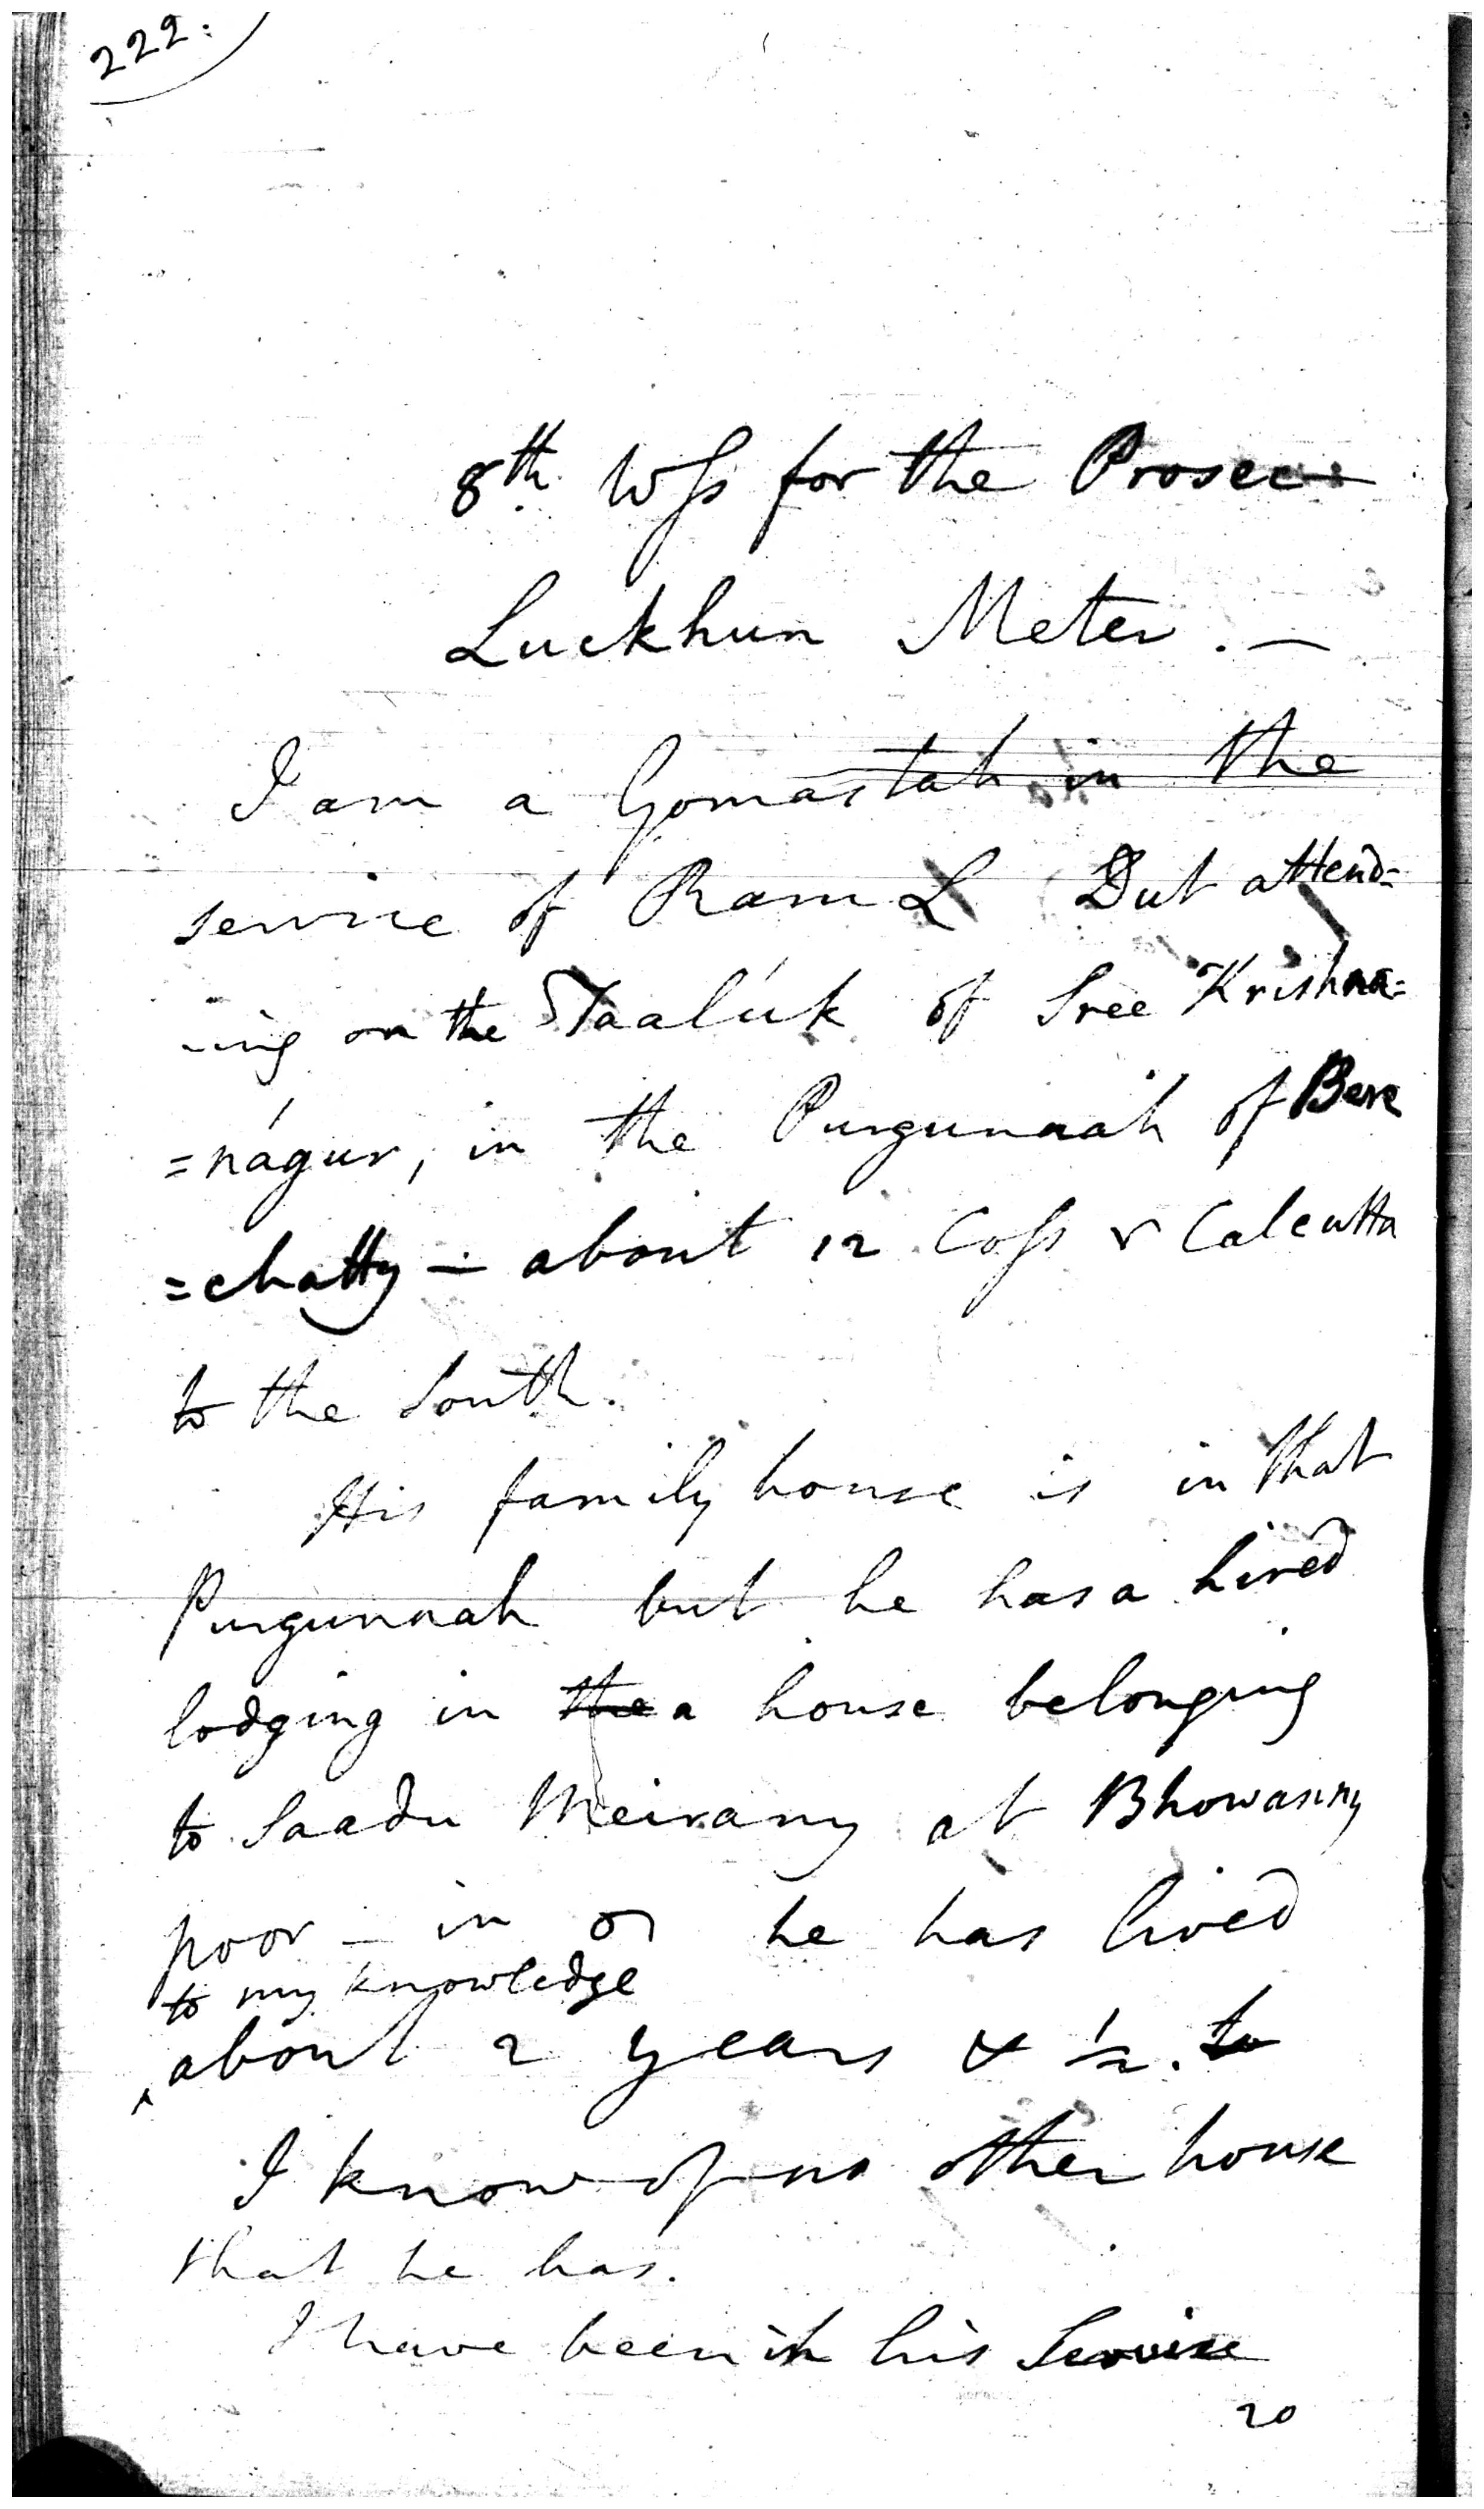 222.
8th. Wss for the Prosec
Luckhun Meter. —
I am a Gomastah in the
service of Ram L Dut attend=
-ing on the Taalúk of Sree Krishna=
=nágur, in the Purgunnah of Bere
=chatty — about 12 Coss Calcutta
to the South.
His family house is in that
Purgunnah but he has a hired
lodging in the a house belonging
to Saadu at Bhowanny
poor — in he has lived
to my knowledge
about 2 years & ½. to
I know of no other house
that he has.
I have been in his Service
20